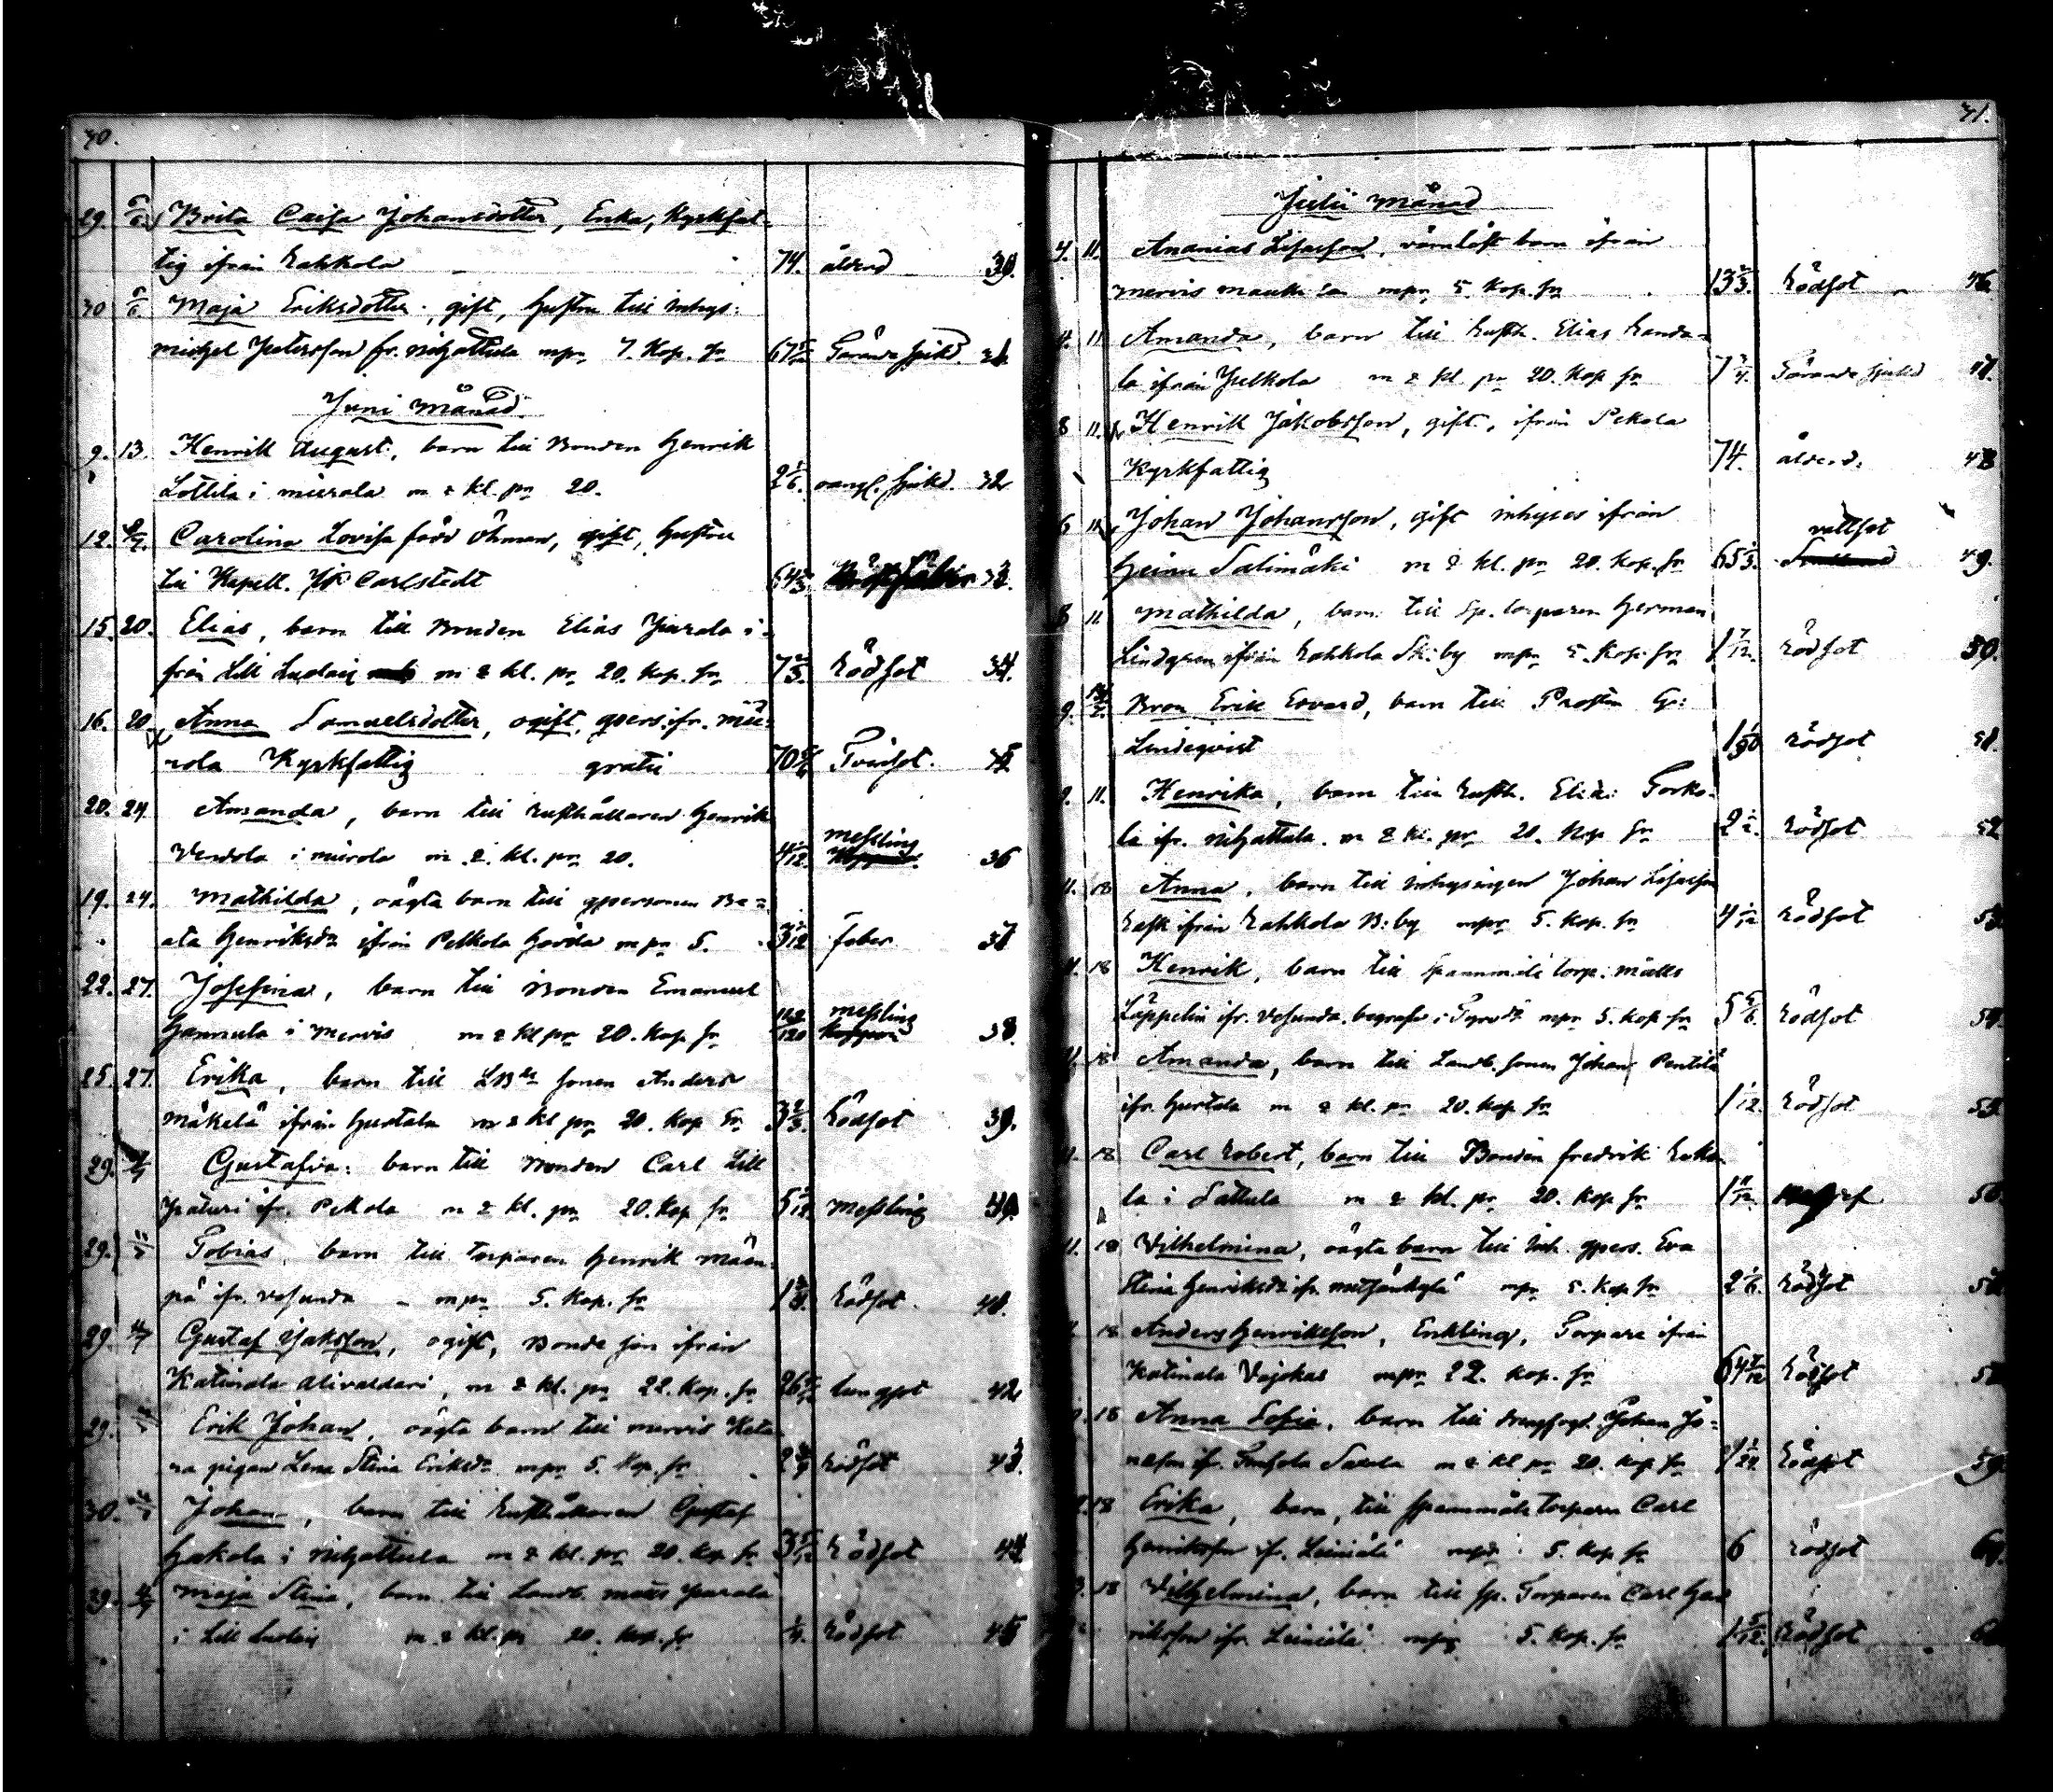 30.
29. 6/6 Brita Caisa Johansdotter, Enka, Kyrkfat-
tig ifrån Rahkola 74. ålderd 30.
30 Maja Eriksdotter, gift, hustru till inhys:
Michel Petersson fr. Nihattula mpr 7. Kop. Sr 67 Tärande sjukd. 31
Juni Månad
9. 13. Henrik August, barn till Bonden Henrik
Lottila i Mierola m 2 kl. pr 20. 2 1/6. oangf. sjukd. 32
12. Carolina Lovisa född Öhman, gift, hustru
till Kapell. Carlstedt 64 33.
15. 20. Elias, barn till Bonden Elias Parola i-
från Lill Luolais m 2 kl. pr 20. Kop. Sr 7 2/3. Rödsot 34.
16. 20 Anna Samuelsdotter, ogift, qpers. ifr. Mie-
rola Kyrkfattig gratis 70 Tvinsot. 35
20. 24 Amanda, barn till Rusthållaren Henrik
Vendola i Mierola m. 2. kl. pr 20. 4 1/12 Messling 36
19. 24. Mathilda, oägta barn till qpersonen Be-
ata Henriksdr ifrån Pelkola Gårda mpr 5. 3 1/12 feber 37
22. 27. Josefina, barn till Bonden Emanuel
Hannula i Mervis m 2 kl pr 20. Kop. Sr Messling 38.
25. 27. Erika, barn till Sonen Anders
Mäkelä ifrån Hurtala m 2 kl pr 20. Kop Sr 3 2/3. Rödsot 39.
29. Gustafva: barn till Bonden Carl Lill
Paturi ifr. Pekola m 2 kl. pr 20. Kop Sr 5 Messling 40.
29. Tobias, barn till Torparen Henrik Mäen-
pä ifr. Vesunda mpr 5. Kop. Sr 1 Rödsot. 41.
29. Gustaf Isaksson, ogift, Bonde son ifrån
Katinala Alivaldari, m 2 kl. pr 22. Kop. Sr 26 lungsot 42
29. Erik Johan, oägta barn till Mervis Keta-
ra pigan Lena Stina Eriksdr mpr 5. Kop. Sr 2 Rödsot 43.
30. Johan, barn till Rusthållaren Gustaf
Hakola i Nihattula m 2 kl. pr 20. Kop Sr 3 Rödsot 44
29. Maja Stina, barn till Landb. Matts Parola
i Lill Luolais m 2 kl. pr 20. Kop. Sr Rödsot 45
31.
Julii Månad
4. 11. Ananias Esaiasson, värnlöst barn ifrån
Mervis mpr 5. Kop. Sr 13 2/3. Rödsot 46
4. 11 Amanda, barn till Rusth. Elias Handa-
la ifrån Pelkola m 2 kl. pr 20. Kop Sr 7 Tärande sjukd 47.
8 11. Henrik Jakobsson, gift, ifrån Pekola
Kyrkfattig 74. ålderd. 48
6 11. Johan Johansson, gift inhyses ifrån
Heinu Salimäki m 2 kl. pr 20. Kop. Sr 65 1/3. vattsot 49.
8 11 Mathilda, barn till Sp. torparen Herman
Lindgren ifrån Rahkola Sk: by mpr 5. Kop. Sr 1 7/12. Rödsot 50.
9. Bror Erik Edvard, barn till Prosten G:
Lindeqvist Rödsot 51.
9. 11. Henrika, barn till Rusth. Elias Torko-
la ifr. Nihattula. m 2 kl. pr 20. Kop Sr 2 1/2. Rödsot 52
11. 18 Anna, barn till inhysingen Johan Esaiasson
Rask ifrån Rahkola B: by mpr 5. Kop. Sr 4 1/12 Rödsot 53.
11. 18 Henrik, barn till Spannmåls torp: Matts
Läppelin ifr. Vesunda. begrafven i Tyrvändö mpr 5. Kop Sr 5 5/6. Rödsot 54.
11. 18 Amanda, barn till Landb. sonen Johan Pentilä
ifr. Hurtala m 2 kl. pr 20. Kop Sr 1 1/12. Rödsot 55.
11. 18 Carl Robert, barn till Bonden Fredrik Erko-
la i Sattula m 2 kl. pr 20. Kop Sr 1 11/12. 56.
11. 18 Vilhelmina, oägta barn till Inh. qpers. Eva
Stina Henriksdr ifr. Metsänkylä mpr 5. Kop Sr 2 1/6. Rödsot 57
18 Anders Henriksson, Enkling, Torpare ifrån
Katinala Vojokas mpr 22. Kop. Sr 64 Rödsot 58
18 Anna Sofia, barn till Johan Jo-
nasson ifr. m 2 kl pr 20. Kop Sr Rödsot 59.
18 Erika, barn, till Spannmåls Torparen Carl
Henriksson ifr. Leiniälä mpr 5. Kop Sr 6 Rödsot 60.
18 Vilhelmina, barn till Sp. Torparen Carl Hen-
riksson ifr. Leiniälä mpr 5. Kop. Sr 1 5/12. Rödsot